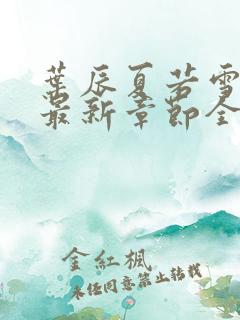 葉辰夏若雪
最新章節全
金紅楓
未经同意禁止转载